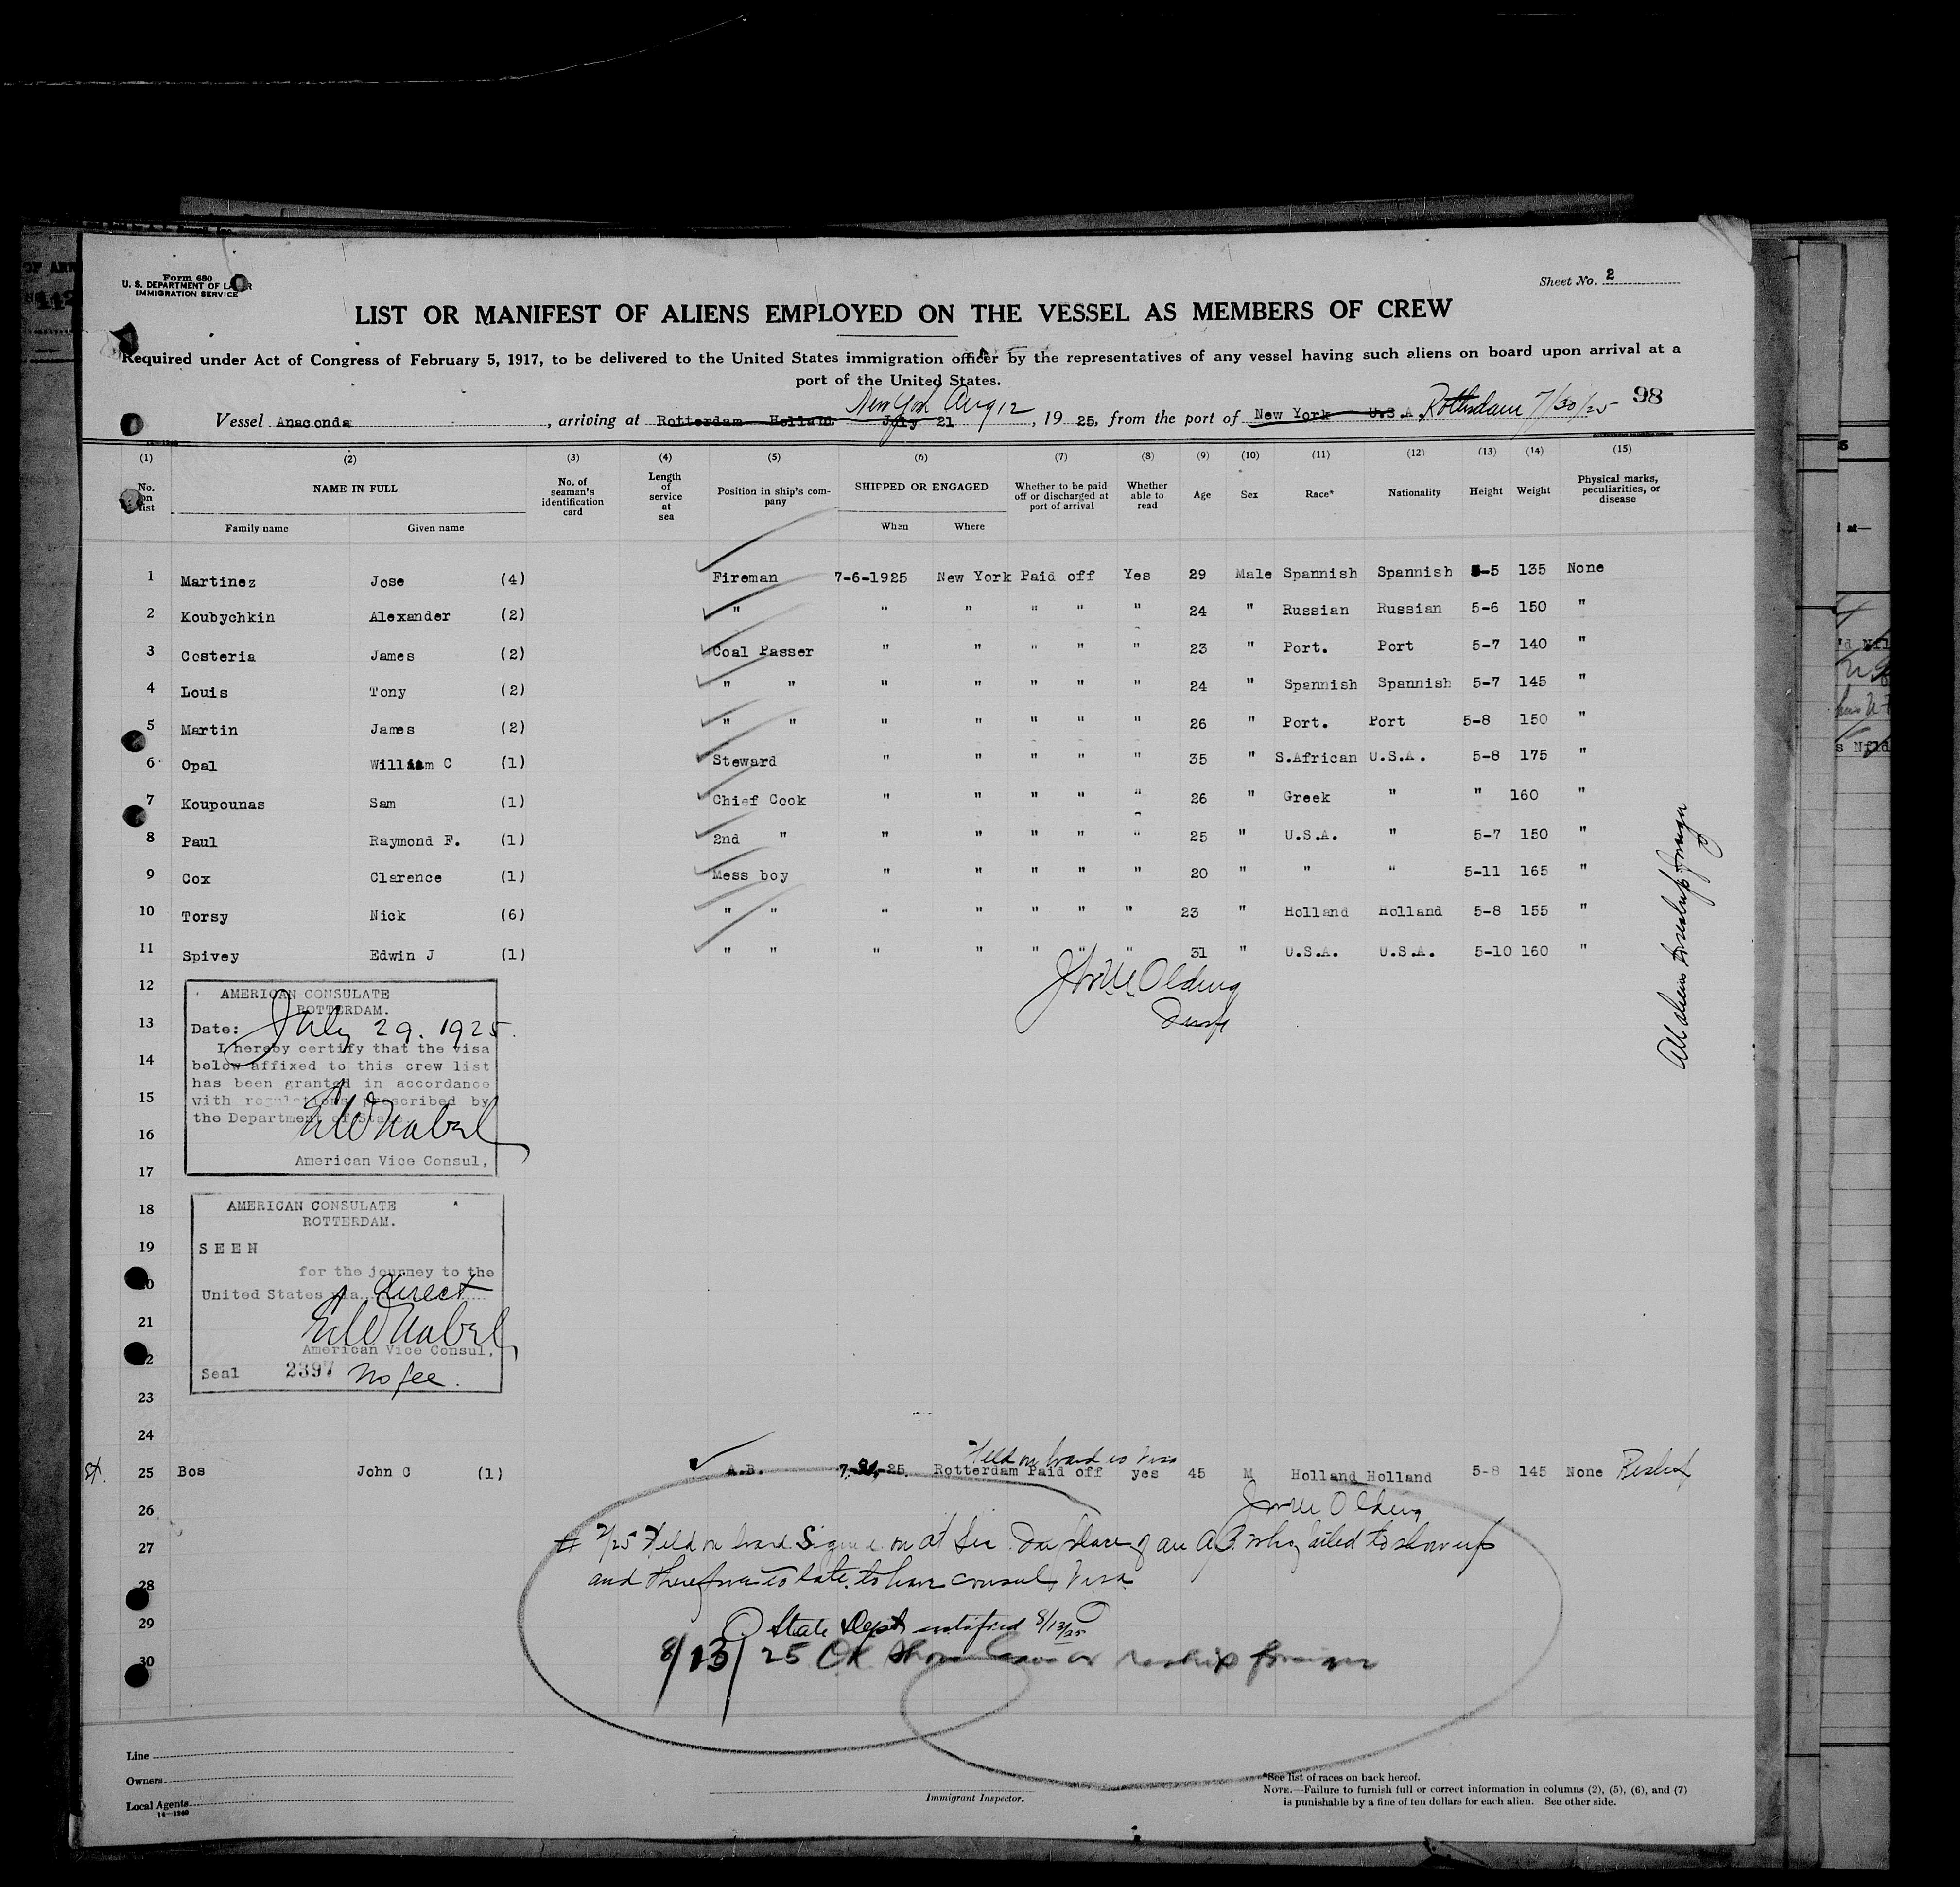 Form 680
U. S. DEPARTMENT OF LABOR
IMMIGRATION SERVICE
Sheet No. 2
LIST OR MANIFEST OF ALIENS EMPLOYED ON THE VESSEL AS MEMBERS OF CREW
Required under Act of Congress of February 5, 1917, to be delivered to the United States immigration officer by the representatives of any vessel having such aliens on board upon arrival at a
port of the United States.
New York Aug 12
98
Vessel Anaconda, arriving at Rotterdam Holland July 21, 1925, from the port of New York U.S.A. Rotterdam 7/30/25
(1) (2) (3) (4) (5) (6) (7) (8) (9) (10) (11) (12) (13) (14) (15)
No. on list NAME IN FULL Family name Given name No. of seaman's identification card Length of service at sea Position in ship's company SHIPPED OR ENGAGED When Where Whether to be paid off or discharged at port of arrival Whether able to read Age Sex Race* Nationality Height Weight Physical marks, peculiarities, or disease
1 Martinez Jose (4) Fireman 7-6-1925 New York Paid off Yes 29 Male Spannish Spannish 5-5 135 None
2 Koubychkin Alexander (2) " " " " " " 24 " Russian Russian 5-6 150 "
3 Costeria James (2) Coal Passer " " " " " 23 " Port. Port 5-7 140 "
4 Louis Tony (2) " " " " " " " 24 " Spannish Spannish 5-7 145 "
5 Martin James (2) " " " " " " " 26 " Port. Port 5-8 150 "
6 Opal William C (1) Steward " " " " " 35 " S.African U.S.A. 5-8 175 "
7 Koupounas Sam (1) Chief Cook " " " " " 26 " Greek " " 160 "
8 Paul Raymond F. (1) 2nd " " " " " " 25 " U.S.A. " 5-7 150 "
9 Cox Clarence (1) Mess boy " " " " " 20 " " " 5-11 165 "
10 Torsy Nick (6) " " " " " " " 23 " Holland Holland 5-8 155 "
11 Spivey Edwin J (1) " " " " " " " 31 " U.S.A. U.S.A. 5-10 160 "
12
13
14
15
16
17
AMERICAN CONSULATE
ROTTERDAM.
Date: July 29. 1925.
I hereby certify that the visa
below affixed to this crew list
has been granted in accordance
with regulations prescribed by
the Department of State.
American Vice Consul,
All aliens to reship foreign
18
19
20
21
22
23
24
AMERICAN CONSULATE
ROTTERDAM.
SEEN
for the journey to the
United States via direct
American Vice Consul,
Seal 2397 No fee.
Held on board no visa
25 Bos John C (1) A.B. 7-31-25. Rotterdam Paid off yes 45 M Holland Holland 5-8 145 None
26
27
28
29
30
Held on board. Signed on at place of an A.B. who failed to show up
and therefore to late to have consul visa
State Dept notified 8/13/25
8/13/25 OK reship foreign
Line
Owners
Local Agents
14—1240
Immigrant Inspector.
*See list of races on back hereof.
NOTE.—Failure to furnish full or correct information in columns (2), (5), (6), and (7)
is punishable by a fine of ten dollars for each alien. See other side.